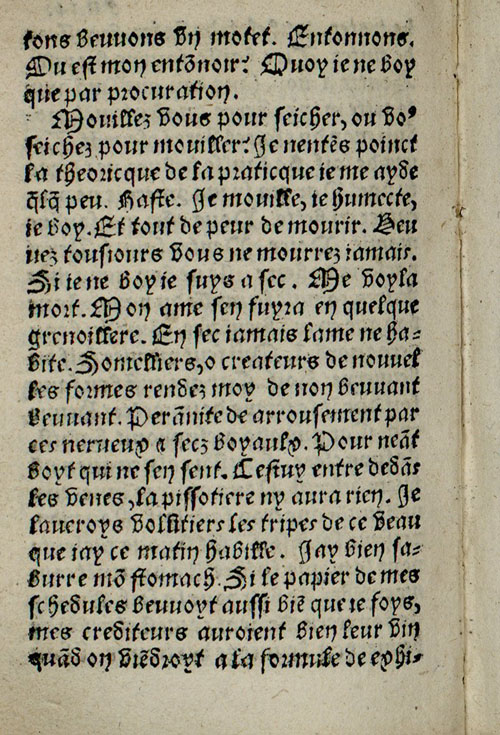 tons beuuons vn motet. Entonnons.
Ou est mon entõnoir? Quoy ie ne boy
que par procuration.
Mouillez vous pour seicher, ou vo⁹
seichez pour mouiller? Je nentẽs poinct
la theoricque de la praticque ie me ayde
q̃lq̃ peu. Haste. Je mouille, ie humecte,
ie boy. Et tout de peur de mourir. Beu
uez tousiours vous ne mourrez iamais.
Si ie ne boy ie suys a sec. Me voyla
mort. Mon ame sen fuyra en quelque
grenoillere. En sec iamais lame ne ha-
bite. Somelliers, o createurs de nouuel
les formes rendez moy de non beuuant
beuuant. Perãnite de arrousement par
ces nerueux & secz boyaulx. Pour neãt
boyt qui ne sen sent. Cestuy entre dedãs
les venes, la pissotiere ny aura rien. Je
laueroys voluntiers les tripes de ce veau
que iay ce matin habille. Jay bien sa-
burre mõ stomach. Si le papier de mes
schedules beuuoyt aussi biẽ que ie foys,
mes crediteurs auroient bien leur vin
quãd on viẽdroyt a la formule de exhi-